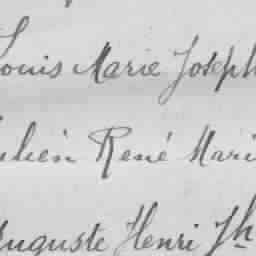 Louis Marie Joseph
Julien René Marie
Auguste Henri Jh